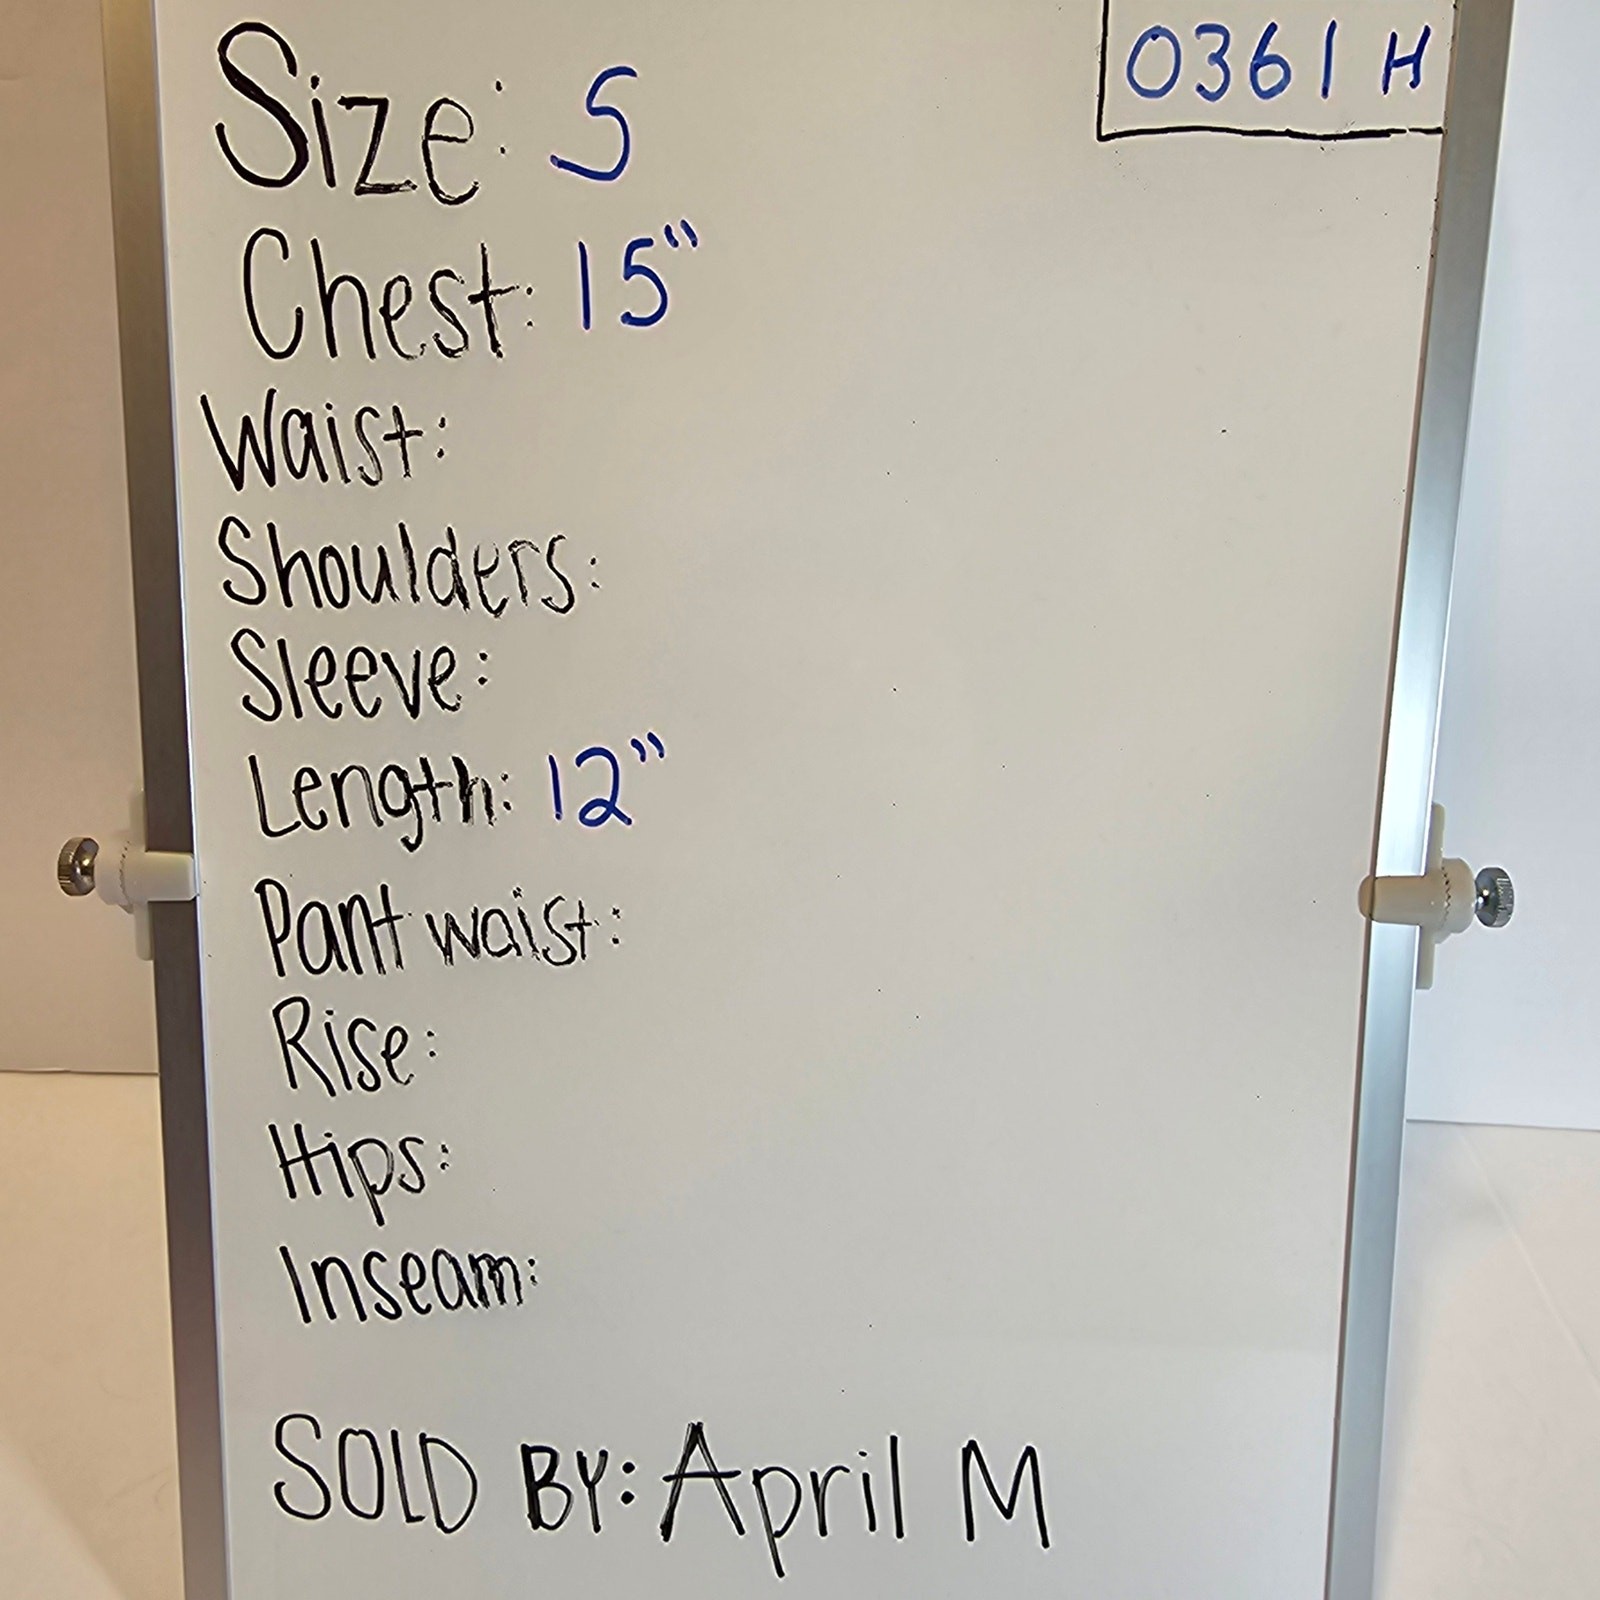 0361 H
Size: S
Chest: 15"
Waist:
Shoulders:
Sleeve:
Length: 12"
Pant waist:
Rise:
Hips:
Inseam:
SOLD BY: April M